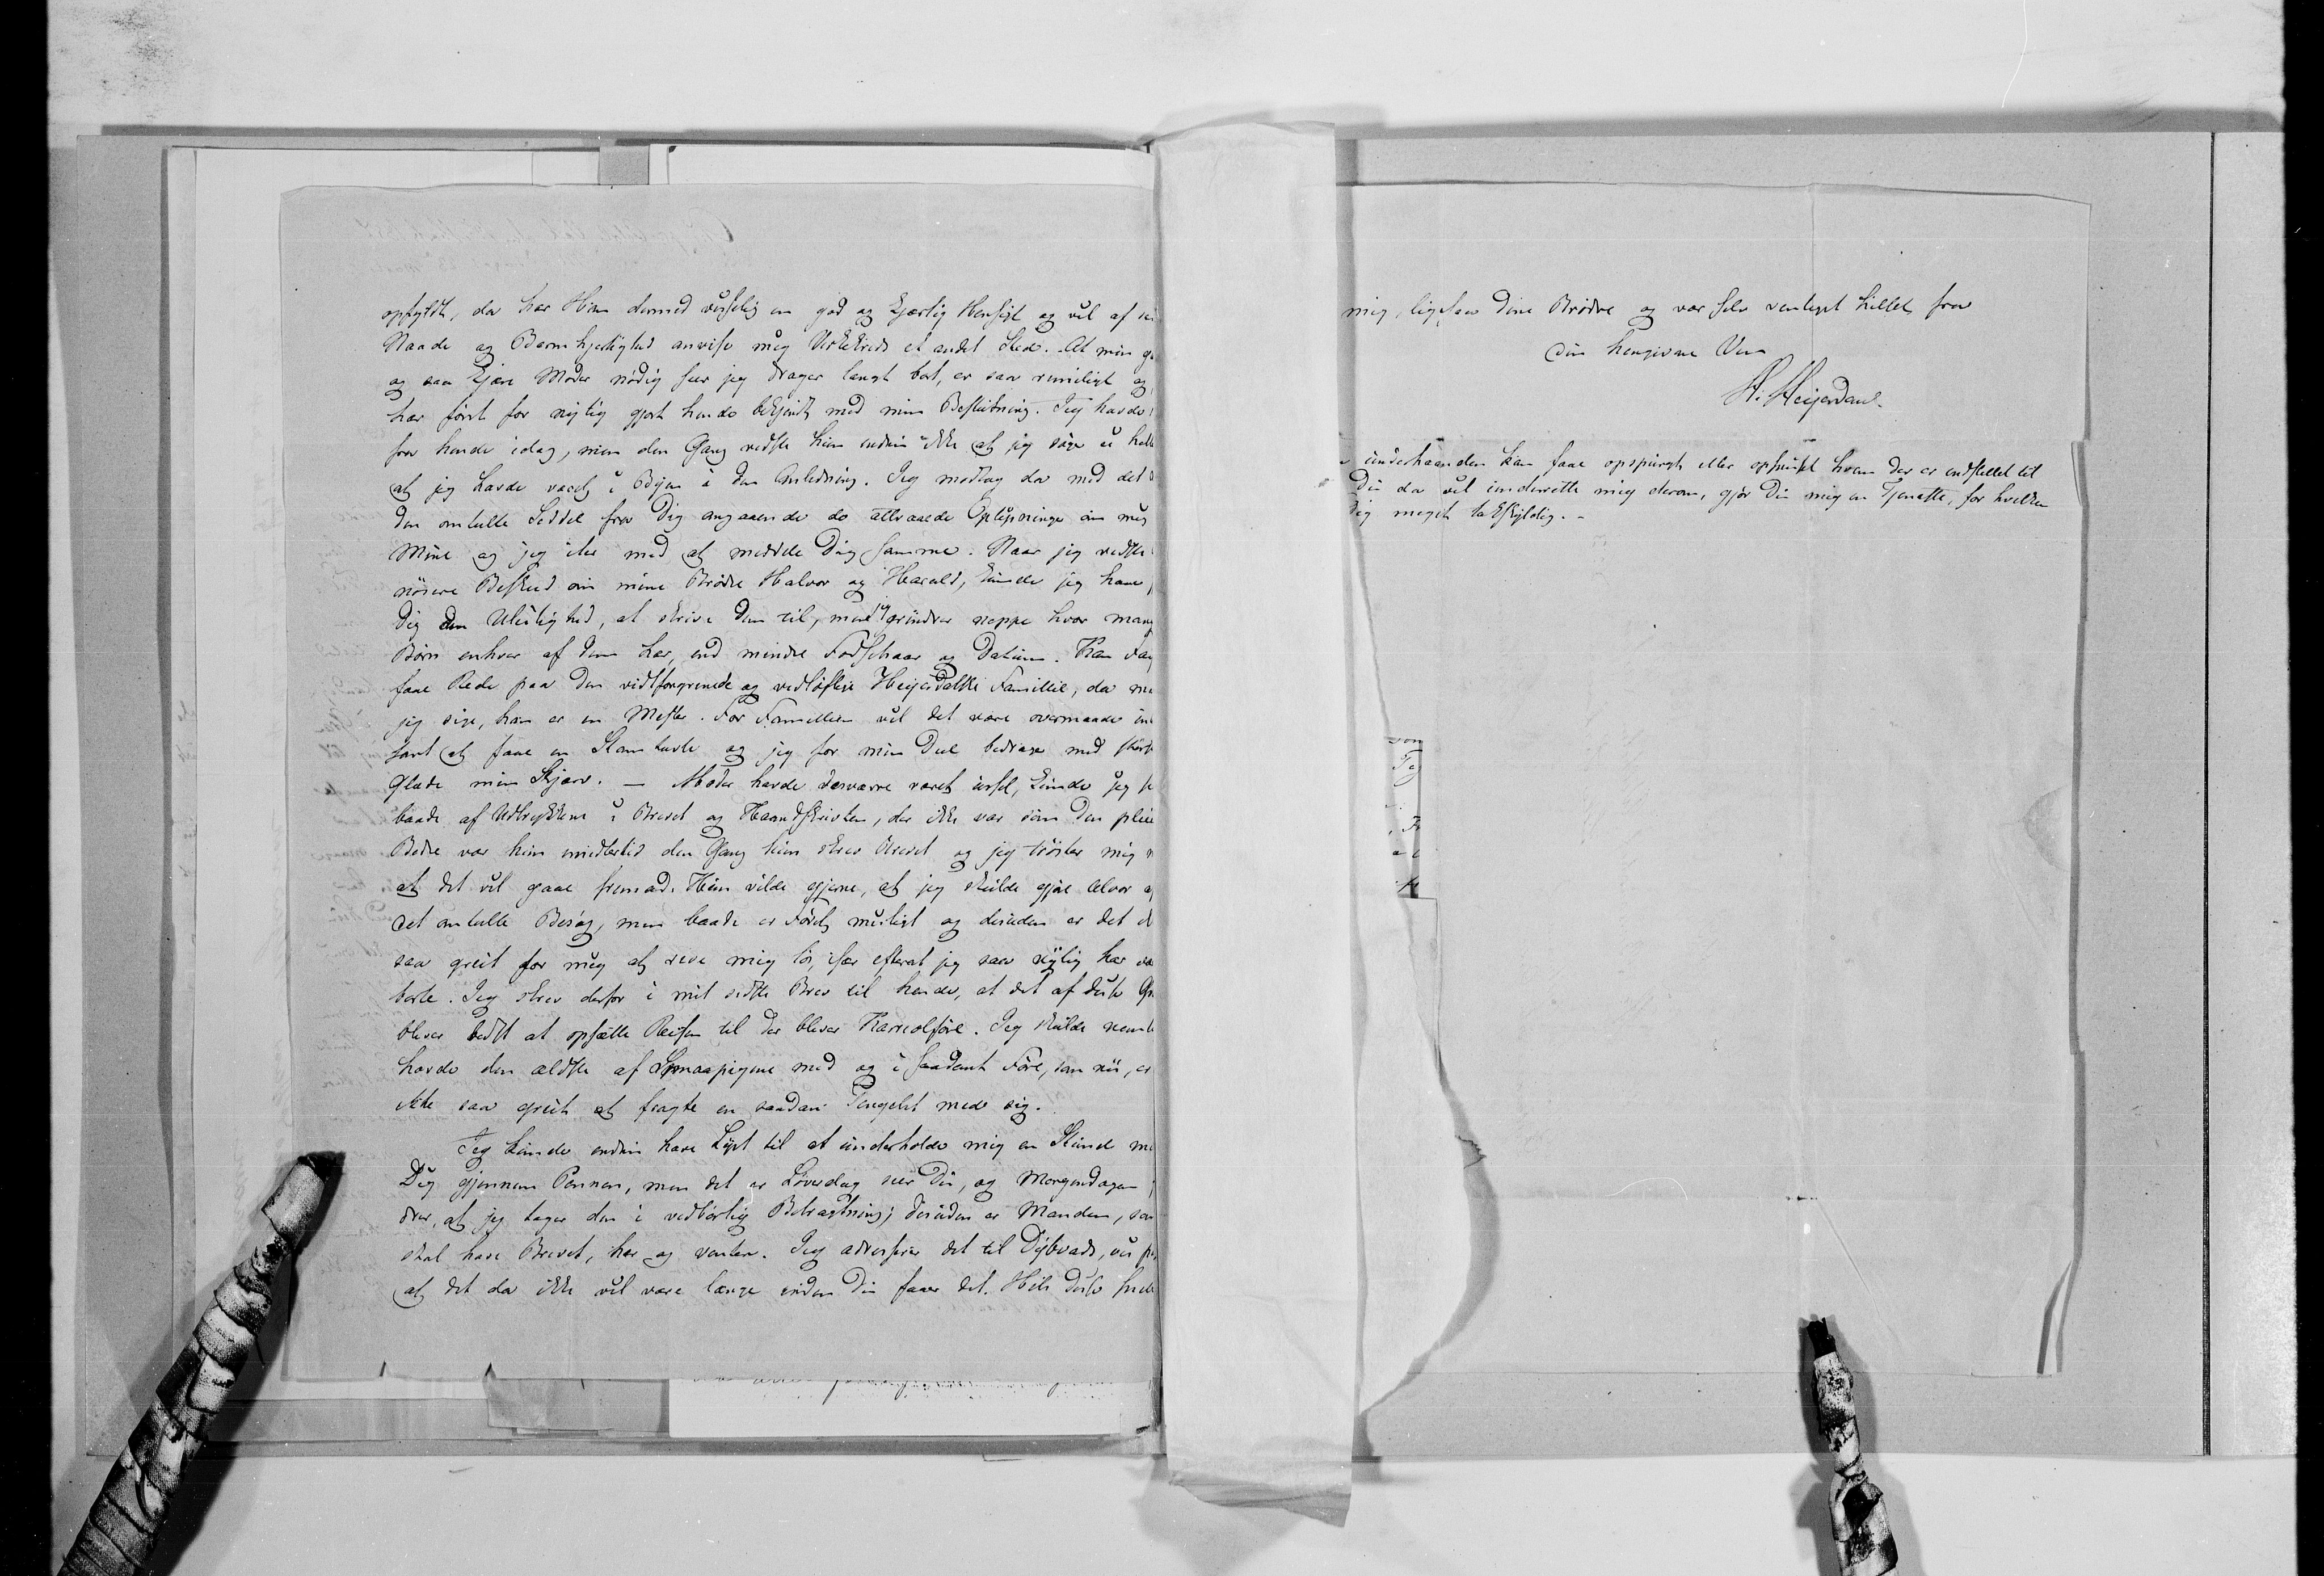 opfyldt, da har Han dermed visselig en god og kjærlig Hensigt og vil af
Naade og Barmhjertighed anvise mig Virkekreds et andet Sted. At min
og saa kjære Moder nödig seer jeg drager langt bort, er saa rimeligt og
har först for nylig gjort hende bekjendt med min Beslutning. Jeg havde
fra hende idag, men den Gang vidste hun endnu ikke at jeg
at jeg havde været i Byen i den Anledning. Jeg modtog da med det
den omtalte Seddel fra Dig angaaende de attraaede Oplysninger om mig
Mine og jeg iler med at meddele Dig samme. Naar jeg vidste
nöiere Besked om mine Brödre Halvor og Harald, kunde jeg have
Dig den Uleilighed, at skrive dem til, men jeg erindrer neppe hvor mang
Börn enhver af dem har, end mindre Födselsaar og Datum. Kan
faae Rede paa den vidtforgrenede og vidlöftige Heijerdalske Familie, da
jeg sige, han er en Mester. For Familien vil det være overmaade
sant at faae en Stamtavle og jeg for min Deel bidrager med störste
Glæde min Skjærv. — Moder havde desværre været ussel, kunde jeg
baade af Udtrykkene i Brevet og Haandskriften, der ikke var som den
Bedre var hun imidlertid den Gang hun skrev Brevet og jeg tröster mig
at det vil gaae fremad. Hun vilde gjerne, at jeg skulde gjöre Alvor
det omtalte Besög, men baade er Föret misligt og desuden er det
saa greit for mig at rive mig lös, især efterat jeg saa nylig har
borte. Jeg skrev derfor i mit sidste Brev til hende, at det af disse
bliver bedst at opsætte Reisen til der bliver Karriolföre. Jeg skulde
havde den ældste af Smaapigene med og i saadant Före, som nu, er
ikke saa greit at fragte en saadan med sig.
Jeg kunde endnu have Lyst til at underholde mig en Stund
Dig gjennem Pennen, men det er Löverdag seer Du, og Morgendagen
drer, at jeg tager den i vedbörlig Betragtning; desuden er Manden, som
skal have Brevet, her og venter. Jeg adresserer det til Dybvads, vis
at det da ikke vil være længe inden Du faaer det. Hils disse
mig, ligesaa Dine Brödre og vær selv venligst hilset fra
Din hengivne Ven
H. Heijerdahl.
underhaanden kan faae opspurgt eller opsnust hvem der er indstillet til
Du da vil underrette mig derom, gjör Du mig en Tjeneste, for hvilken
Dig meget takskyldig. –